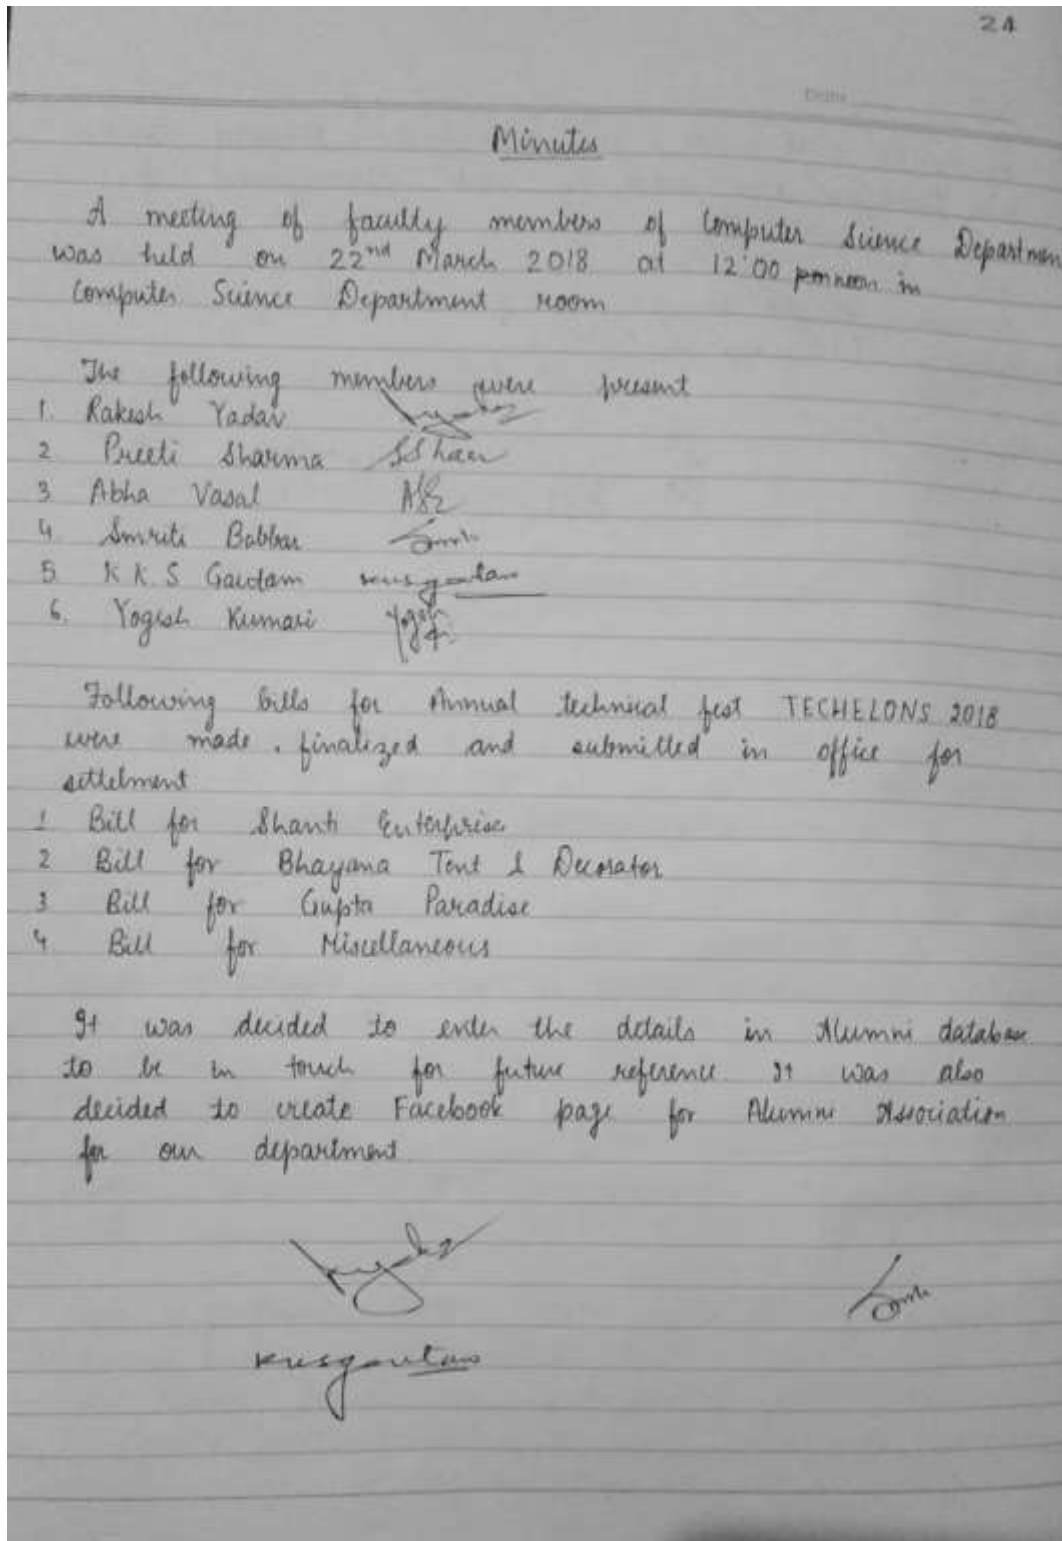 24
Date
Minutes
A meeting of faculty members of Computer Science Departmen
was held on 22nd March 2018 at 12:00 noon in
Computer Science Department room
The following members were present
1. Rakesh Yadav
2 Preeti Sharma
3 Abha Vasal
4 Smriti Babbar
5 K K S Gautam kksgautam
6. Yogesh Kumari Yogesh
Following bills for Annual technical fest TECHELONS 2018
were made, finalized and submitted in office for
settelment
1 Bill for Shanti Enterprise
2 Bill for Bhayana Tent & Decorator
3 Bill for Gupta Paradise
4 Bill for Miscellaneous
It was decided to enter the details in Alumni database
to be in touch for future reference It was also
decided to create Facebook page for Alumni Association
for our department
kksgautam